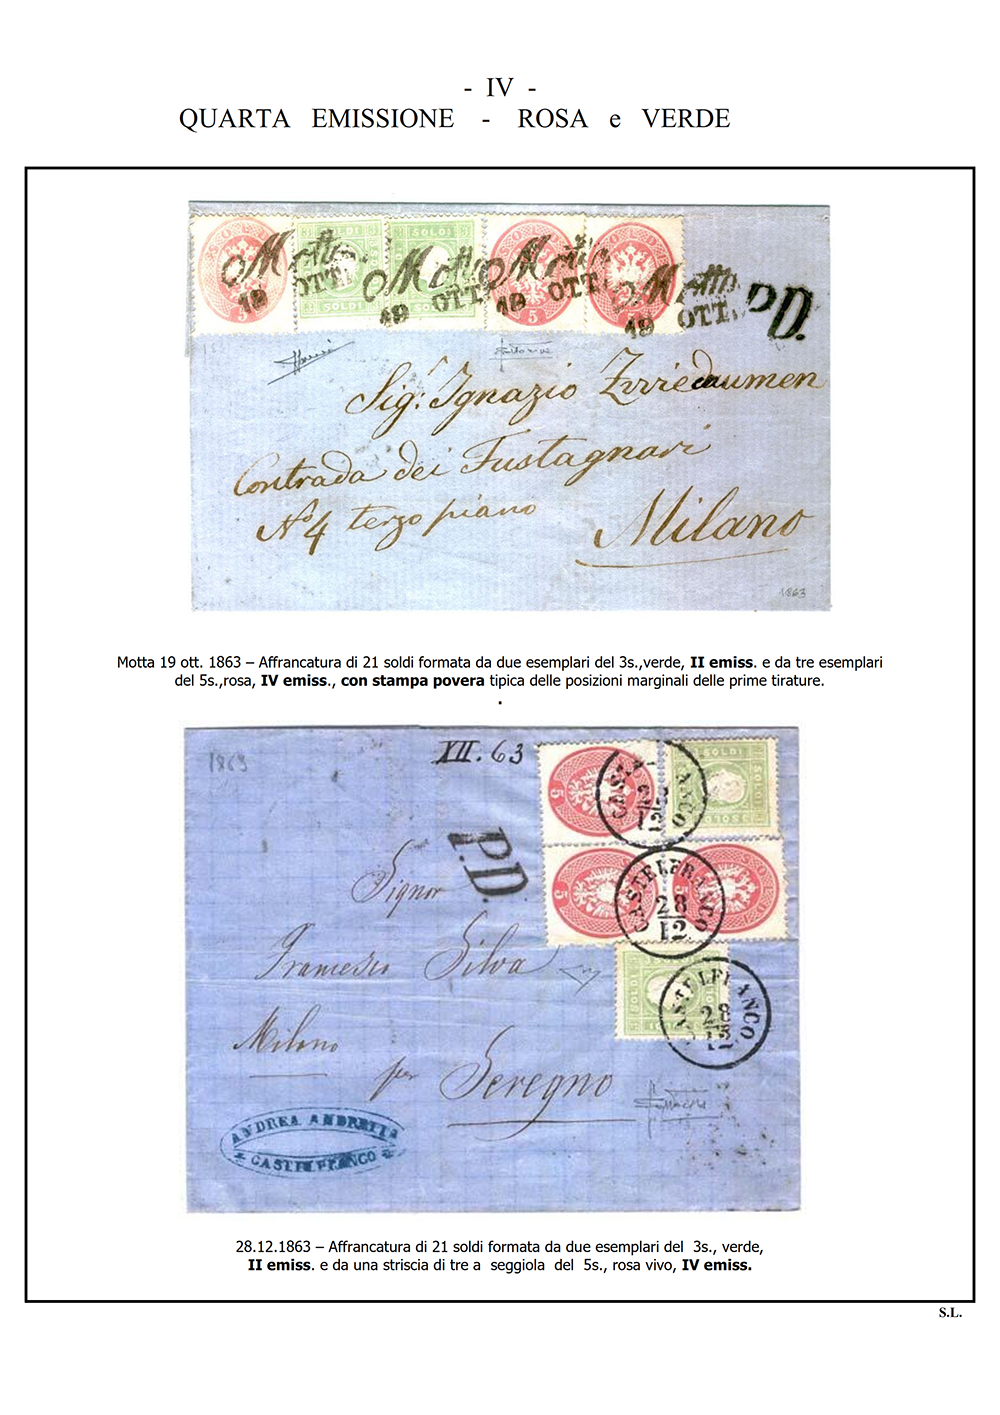 - IV -
QUARTA EMISSIONE - ROSA e VERDE
SOLDI
SOLDI
Motta
19 OTT.
Motta
19 OTT.
Motta
19 OTT.
Motta
19 OTT.
P.D.
5
5
Sig.r Ignazio
Contrada dei Fustagnari
N.o 4 terzo piano
Milano
1863
Motta 19 ott. 1863 – Affrancatura di 21 soldi formata da due esemplari del 3s.,verde, II emiss. e da tre esemplari
del 5s.,rosa, IV emiss., con stampa povera tipica delle posizioni marginali delle prime tirature.
.
1863
XII. 63
P.D.
SOLDI
5
5
CASTELFRANCO
28
12
CASTELFRANCO
28
12
CASTELFRANCO
28
12
Signor
Francesco Silva
Milano
per Seregno
ANDREA ANDRETTA
CASTELFRANCO
28.12.1863 – Affrancatura di 21 soldi formata da due esemplari del 3s., verde,
II emiss. e da una striscia di tre a seggiola del 5s., rosa vivo, IV emiss.
S.L.